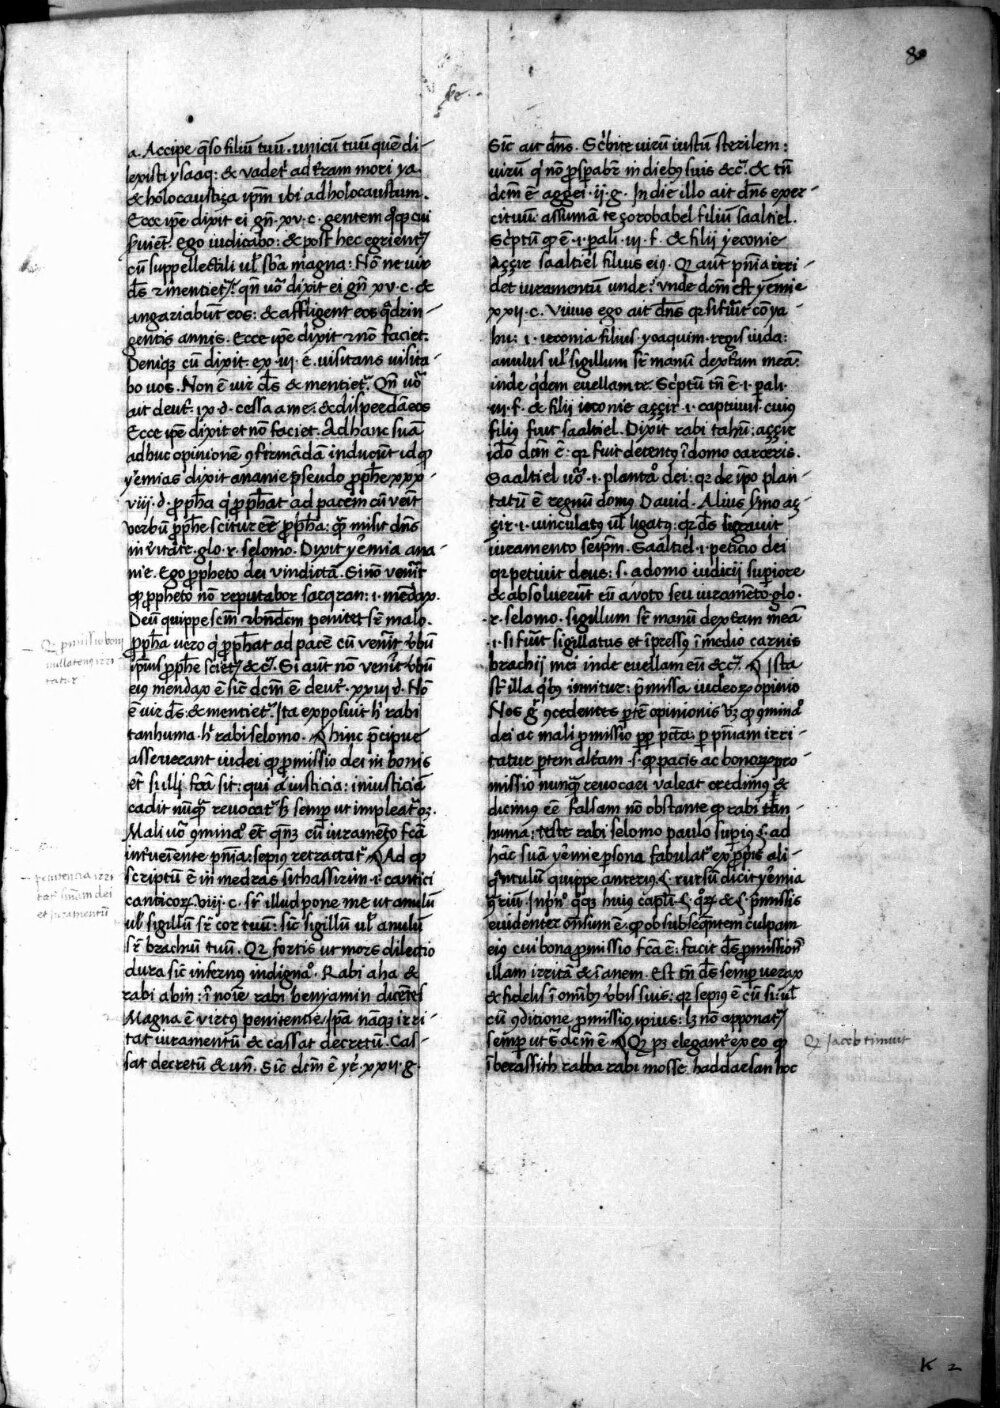 80
a. Accipe q̄so filiū tuū unicū tuū quē di-
lexisti ysaaq: & vadet̃ ad t̃ram mori ya
& holocaustiza ip̄m ibi ad holocaustum.
Ecce ip̄e dixit ei gn̄. xv. c. gentem cui
ego iudicabo: & post hec egredient᷑
cū suppellectili ul̃ sb̃a magna: Nō ne vir
d̄s & mentiet᷑. qn̄ uō dixit ei gn̄ xv. c. &
angariabūt eos: & affligent eos q̃drin-
gentis annis. Ecce ip̄e dixit & nō faciet.
Deniq; cū dixit. ex. iii. c. visitans visita-
bo vos. Non ē vir d̄s & mentiet᷑. Qn̄ uō
ait deut̃. ix. d. cessa a me: & disperdā eos
Ecce ip̄e dixit et nō faciet. Ad hanc suā
adhuc opinionē ꝯfirmādā inducūt id qđ
yem̃ias dixit ananie pseudo ꝓph̃e xxx
viii. d. ꝓph̃a q̇ ꝓph̃at ad pacem cū ven̄it
verbū ꝓph̃e scitur eē ꝓph̃a: quē misit dn̄s
in ṽitate. glo. r. selomo. Dixit yem̃ia ana-
nie. Ego ꝓpheto dei vindictā. Si nō ven̄it
qđ ꝓpheto nō reputabor sacqran: i. mēdax.
Deū quippe scīm & bn̄dc̄m penitet sr̄ malo.
ꝓph̃a vero q̇ ꝓph̃at ad pacē cū ven̄it v̄bū
ipius ꝓph̃e sciet᷑ &c̃. Si aūt nō venit v̄bū
eius mendax ē sic̄ dc̄m ē deut̃. xxiii d. Nō
ē vir d̄s: & mentiet᷑. Ita exposuit h̃ rabi
tanhuma. h̃ rabi selomo. ¶ hinc p̄cipue
asseverant iudei qđ ꝓmissio dei in bonis
et̄ si illi fc̄a sit: qui a iusticia: iniusticiā
cadit nūq̃ revocat᷑ s̃ semp ut impleat᷑ oꝫ.
Mali uō ꝯminaō et̄ qn̄ꝫ cū iuramēto fc̄a
int̃veniente pn̄ia: sepius retractat᷑ ¶ Ad qđ
scriptū ē in medras sirhassirim. i. cantici
canticoꝝ viij. c. sr̄ illud pone me ut anulū
ul̃ sigillū sr̄ cor tuū: sic̄ sigillū ul̃ anulū
sr̄ brachiū tuū. Qꝛ fortis ut mors dilectio
dura sic̄ infernus indignaō. Rabi aha &
rabi abin: ī noīe rabi benyamin dicētes
Magna ē virtus penitentie ip̄a nāq; irri-
tat iuramentū & cassat decretū. Cas-
sat decretū & un̄. Sic̄ dc̄m ē yer̃. xxii. g.
Sic̄ ait dn̄s. Sc̃bite virū iustū sterilem:
virū q̇ nō ꝓspabr̃ in dieb; suis &c̃. & tn̄
dc̄m ē aggei. ii. g. In die illo ait dn̄s exer-
cituū: assumā te zorobabel filiū saaltiel.
Sc̃ptū qđ ē. i. pali. iii. f. & filij yeconie
Azzir saaltiel filius eius. Qꝛ aūt pn̄ia irri-
det iuramentū unde: vnde dc̄m est yem̃ie
xxii. c. Vivus ego ait dn̄s qꝛ si fūt cōya
hu: i. yeconia filius yoaquim regis iuda:
anulus ul̃ sigillum sr̄ manū dext̃am meā:
inde q̇dem evellam te. Sc̃ptū tn̄ ē. i. pali.
iii. f. & filij ieconie azzir. i. captivus cuius
filius fuit saaltiel. Dixit rabi tahū: azzir
idō dc̄m ē: qꝛ fuit detentus ī domo carceris.
Saaltiel uō. i. plantaō dei: qꝛ de ip̄o plan-
tatū ē regnū domus David. Alius ymo az-
zir. i. vinculatus ul̃ ligatus: qꝛ d̄s ligavit
iuramento seip̄m. Saaltiel. i. peticio dei
qꝛ petivit deus: s. a domo iudicii supiore
& absolverūt eū a voto seu iuramēto. glo.
r. selomo. sigillum sr̄ manū dext̃am meā
i. si fūit sigillatus et īpressus ī medio carnis
brachij mei inde evellam eū &c̃. ¶ Ista
st̃ illa q̇b; innitur: p̄missa iudeoꝝ opinio
Nos g̃ ꝯcedentes p̃te opinionis vꝫ qđ ꝯminaō
dei ac mali ꝓmissio ꝓp pc̄ta: p pn̄iam irri-
tatur p̃tem alt̃am s. qđ pacis ac bonoꝝ ꝓ
missio nunq̃ revocari valeat credimus &
dicimus eē falsam nō obstante qđ rabi tan-
huma: teste rabi selomo paulo supius ad
hāc suā yem̃ie psona fabulat᷑ ex ꝓp̃iis ali-
q̃ntulū quippe anterius rursū dicit yem̃ia
&
evidenter on̄sum ē: qđ ob subseq̃ntem culpam
eius cui bona ꝓmissio fc̄a ē: facit d̄s ꝓmissionē
illam irritā & īanem. Est tn̄ d̄s semp verax
& fidelis ī omīb; v̄bis suis: qꝛ sepius ē cū si: ul̃
cū ꝯditione ꝓmissio ipius: lꝫ nō apponat᷑
semp ut s̄ dc̄m ē ¶ Qꝫ pꝫ elegant̃ ex eo qđ
ī berassith rabba rabi mosse haddarsan hoc
Qꝫ ꝓmissio boni
nullatenus irri
tatur
penitencia irri
tat sn̄iam dei
et iuramentū
Qꝫ Jacob timuit
K 2